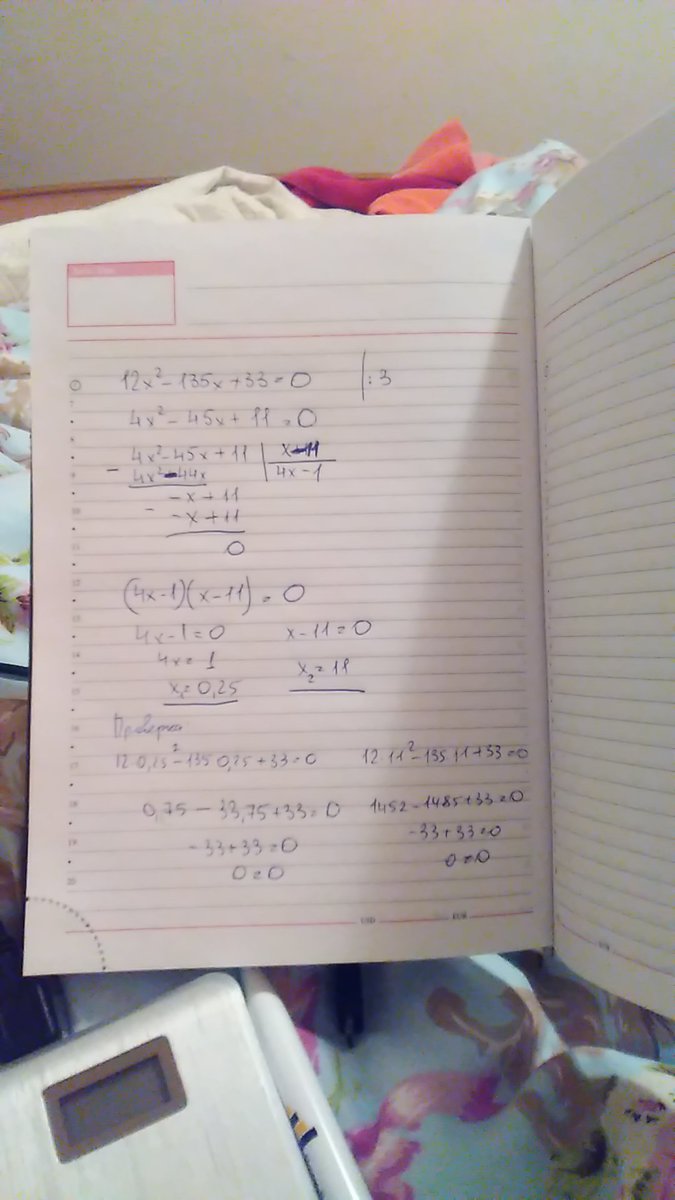 12x² - 135x + 33 = 0 | : 3
4x² - 45x + 11 = 0
4x² - 45x + 11 | x - 11
- 4x² - 44x | 4x - 1
- x + 11
- - x + 11
0
(4x - 1)(x - 11) = 0
4x - 1 = 0 x - 11 = 0
4x = 1 x₂ = 11
x₁ = 0,25
Проверка
12 · 0,25² - 135 · 0,25 + 33 = 0 12 · 11² - 135 · 11 + 33 = 0
0,75 - 33,75 + 33 = 0 1452 - 1485 + 33 = 0
- 33 + 33 = 0 - 33 + 33 = 0
0 = 0 0 = 0
USD EUR